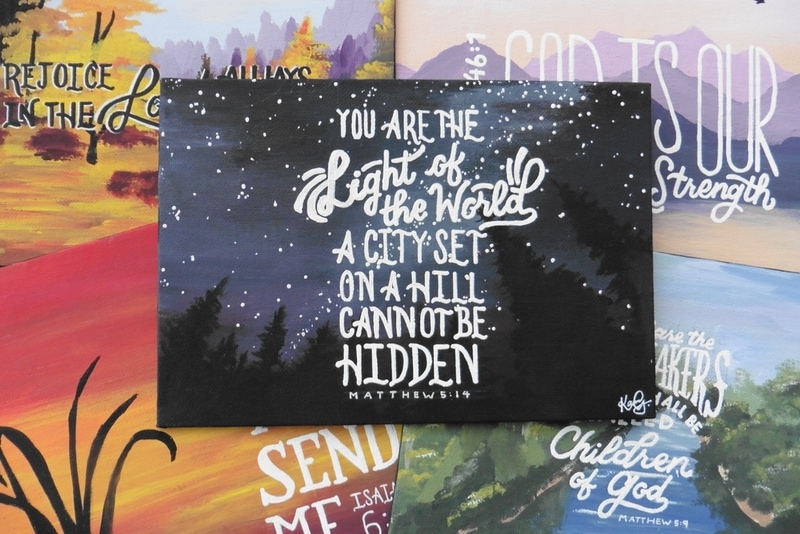 REJOICE
IN THE
ALWAYS
46:1
GOD IS OUR
Strength
YOU ARE THE
Light of
the World
A CITY SET
ON A HILL
CANNOT BE
HIDDEN
MATTHEW 5:14
SEND
ME
6:
are the
SHALL BE
Children
of God
MATTHEW 5:9